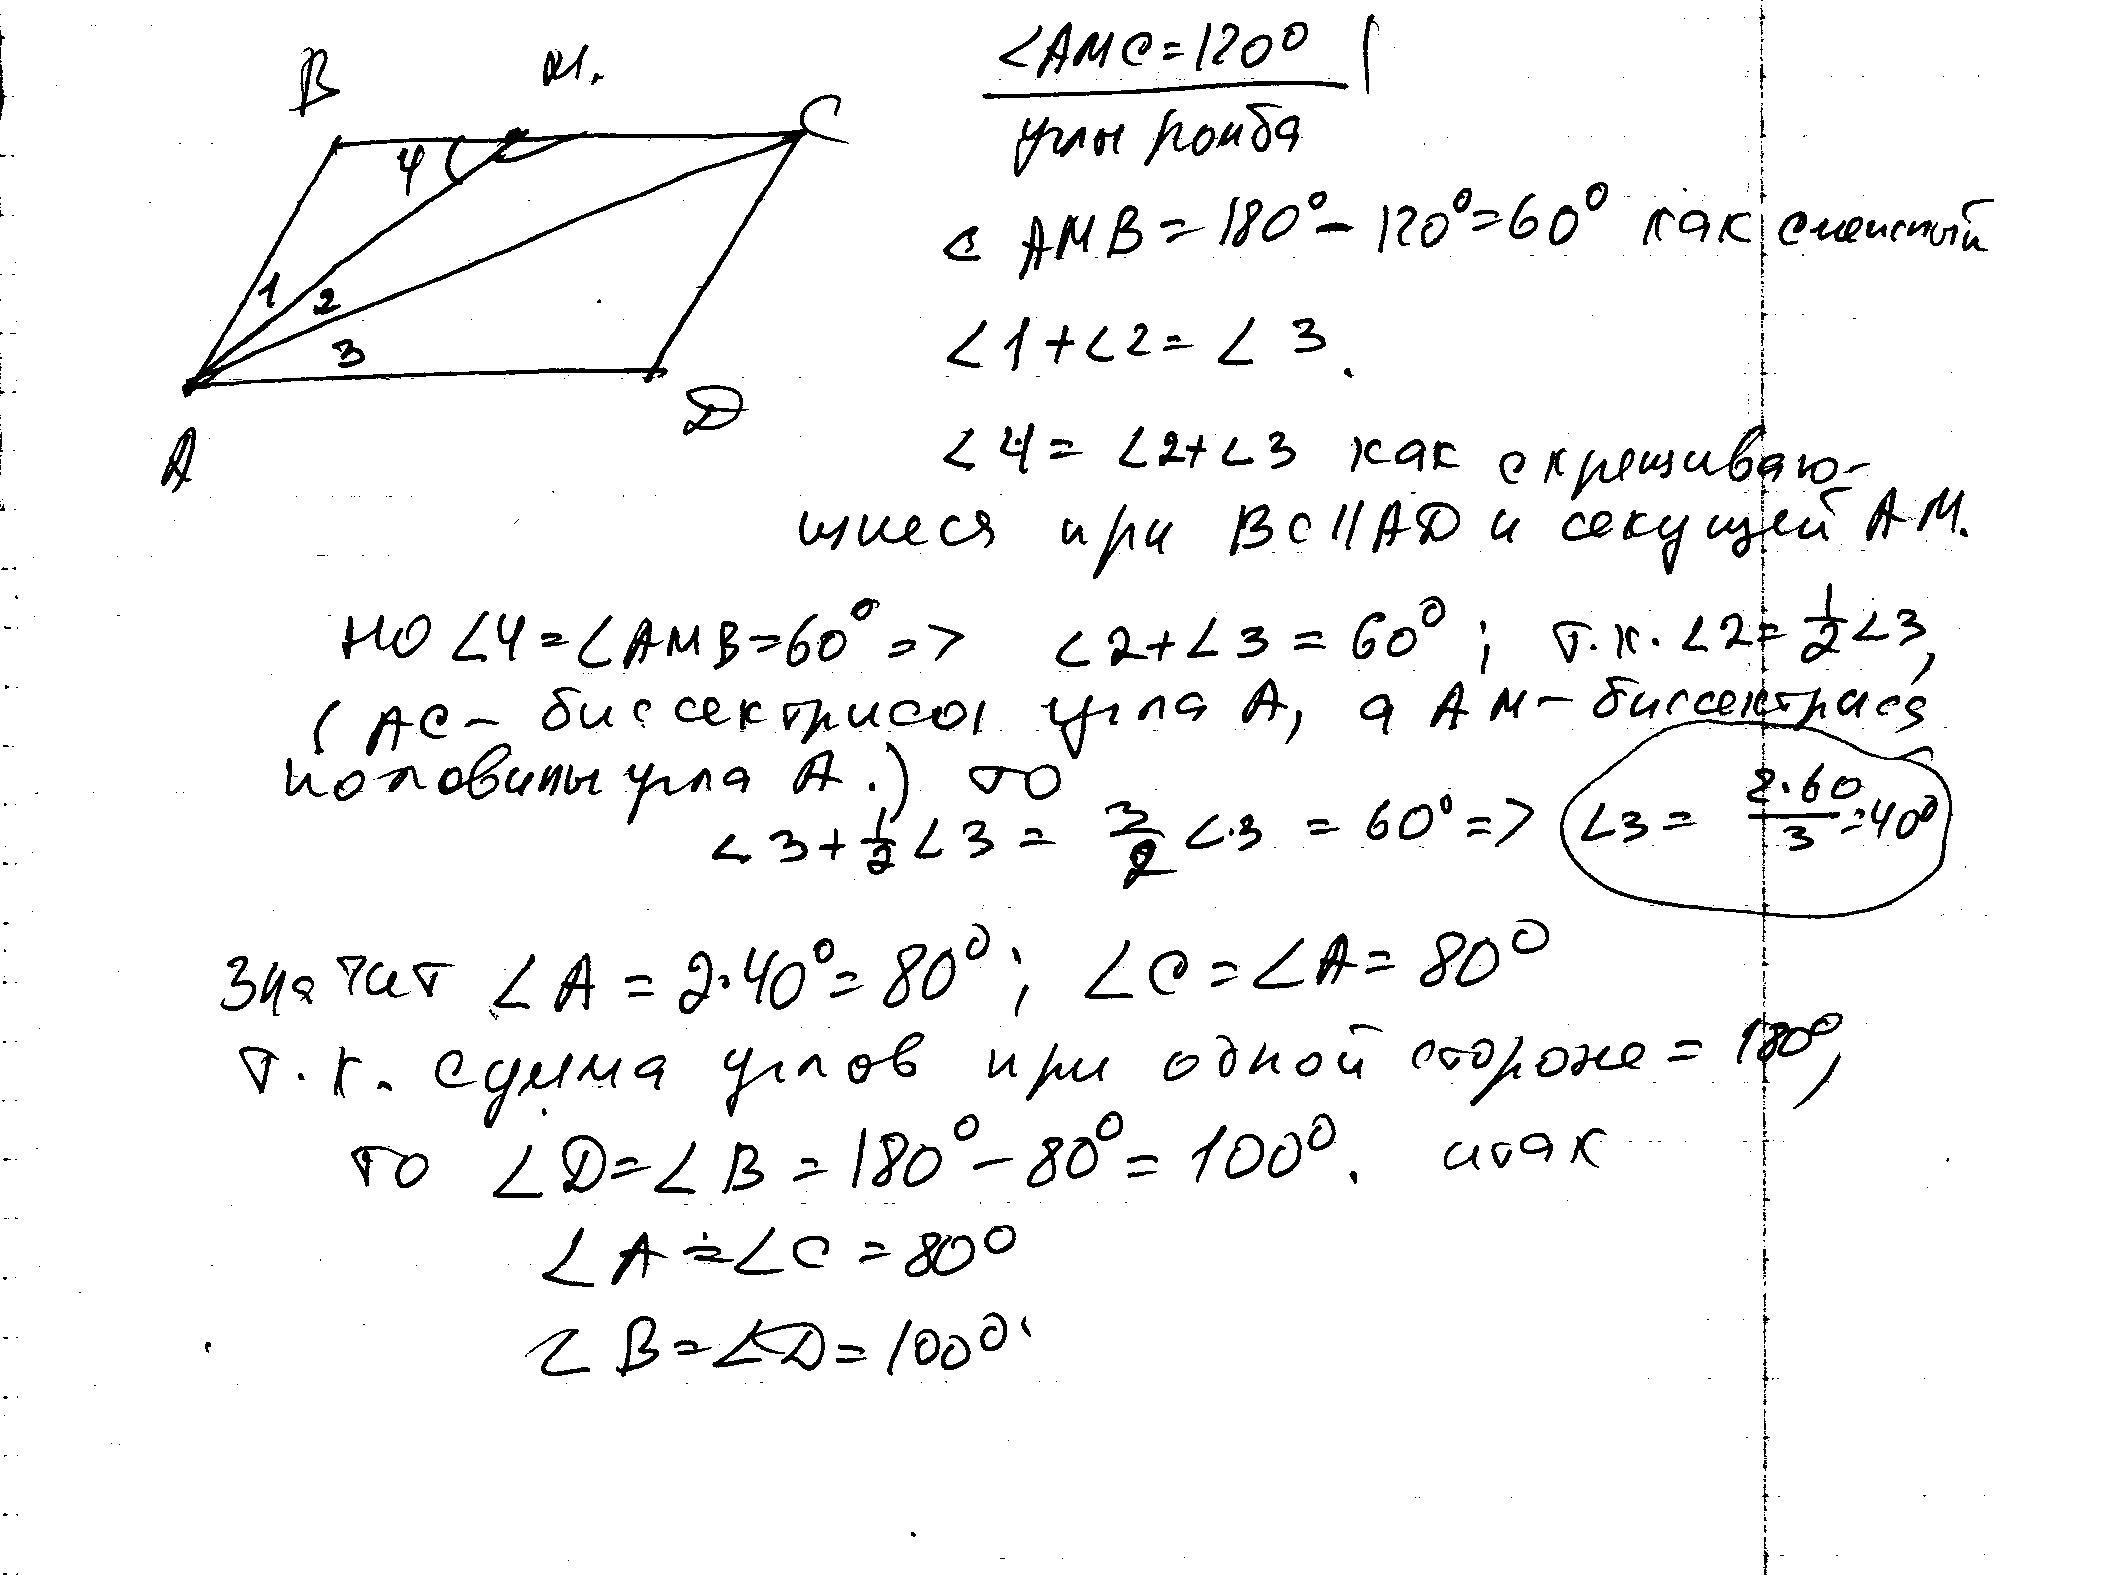 B M.
C
4
1 2
3
A
D
∠AMC=120°
углы ромба
∠ AMB = 180° - 120° = 60° как смежный
∠1+∠2= ∠3.
∠4= ∠2+∠3 как скрещиваю-
щиеся при BC||AD и секущей AM.
НО ∠4=∠AMB=60° => ∠2+∠3=60°; т.к. ∠2=1/2∠3,
(AC- биссектриса угла A, а AM- биссектриса
половины угла A.) то
∠3+1/2∠3= 3/2∠3 = 60° => ∠3= 2·60/3=40°
значит ∠A=2·40°=80°; ∠C=∠A=80°
т.к. сумма углов при одной стороне = 180°,
то ∠D=∠B=180°-80°=100°. итак
∠A=∠C=80°
∠B=∠D=100°